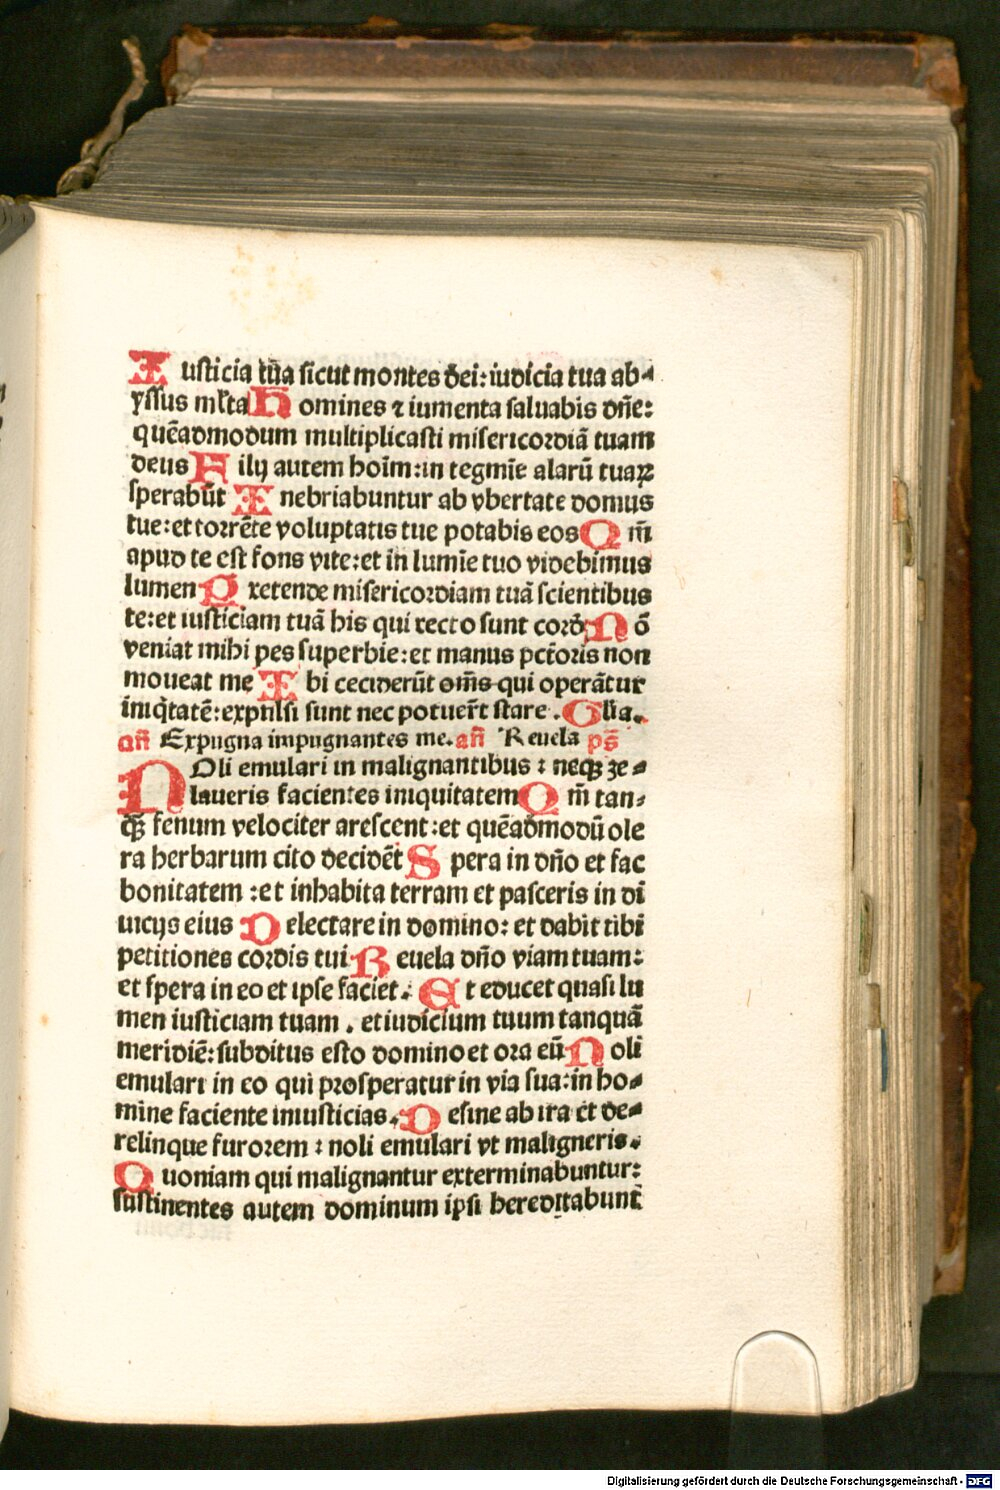 Iusticia tũa sicut montes dei: iudicia tua ab-
yssus ml'ta Homines ⁊ iumenta saluabis dñe:
quẽadmodum multiplicasti misericordiã tuam
deus Filij autem hoĩm: in tegmĩe alarũ tuaꝝ
sperabũt Inebriabuntur ab vbertate domus
tue: et torrẽte voluptatis tue potabis eos Qm̃
apud te est fons vite: et in lumĩe tuo videbimus
lumen Pretende misericordiam tuã scientibus
te: et iusticiam tuã his qui recto sunt cord̃ Nõ
veniat mihi pes superbie: et manus pctõris non
moueat me Ibi ceciderũt om̃s qui operãtur
iniq̃tatẽ: expulsi sunt nec potuer̃t stare. Glia.
añ Expugna impugnantes me. añ Reuela ps̃
NOli emulari in malignantibus: neqꝫ ze-
laueris facientes iniquitatem Qm̃ tan-
qꝫ̃ fenum velociter arescent: et quẽadmodũ ole
ra herbarum cito decidẽt Spera in dño et fac
bonitatem: et inhabita terram et pasceris in di
uicijs eius Delectare in domino: et dabit tibi
petitiones cordis tui Reuela dño viam tuam:
et spera in eo et ipse faciet. Et educet quasi lu
men iusticiam tuam. et iudicium tuum tanquã
meridiẽ: subditus esto domino et ora eũ Noli
emulari in eo qui prosperatur in via sua: in ho-
mine faciente iniusticias. Desine ab ira et de-
relinque furorem: noli emulari vt maligneris.
Quoniam qui malignantur exterminabuntur:
sustinentes autem dominum ipsi hereditabunt
Digitalisierung gefördert durch die Deutsche Forschungsgemeinschaft - DFG